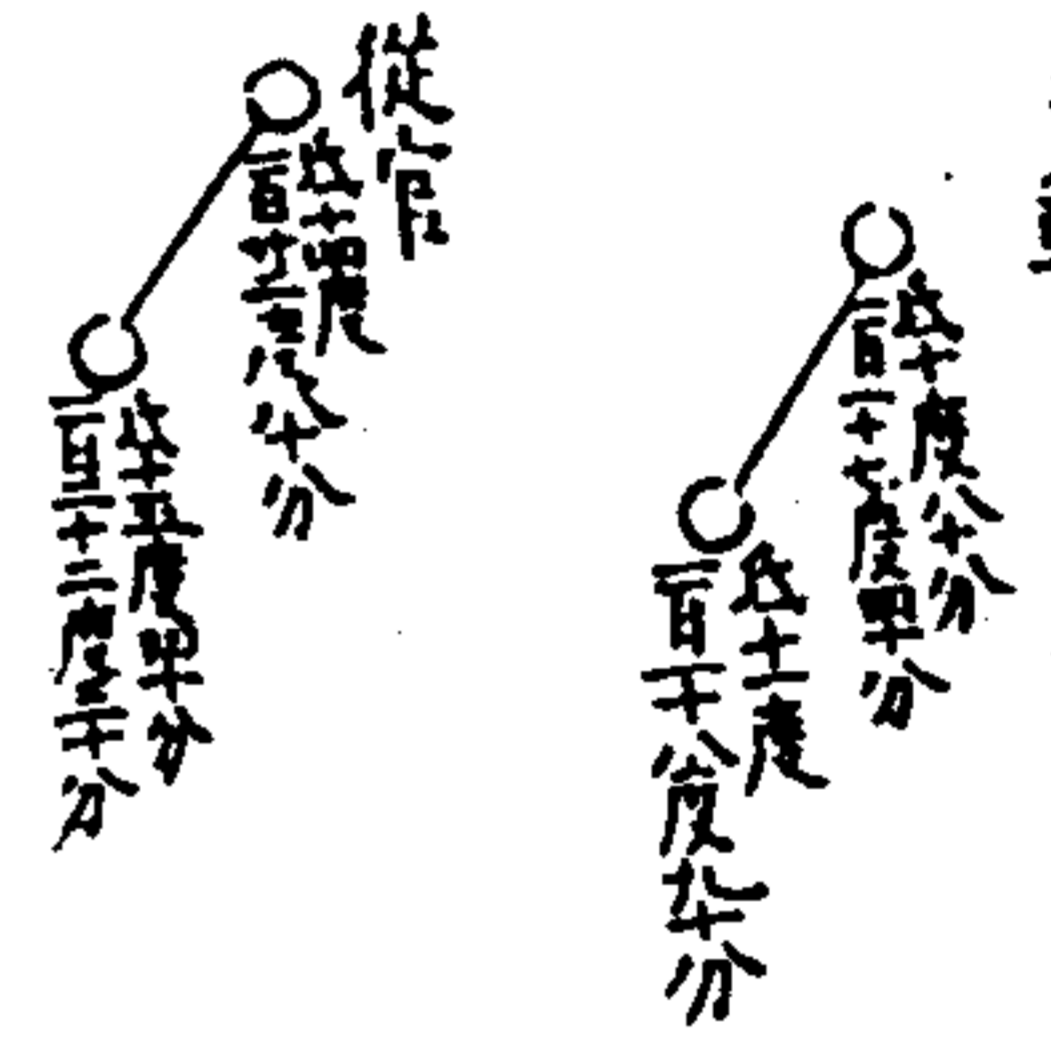 氐十度八十分
一百一十七度四十分
氐十一度
一百一十八度九十分
從官
氐十四度
一百廿二度八十分
氐十五度四十分
一百二十二度二十分